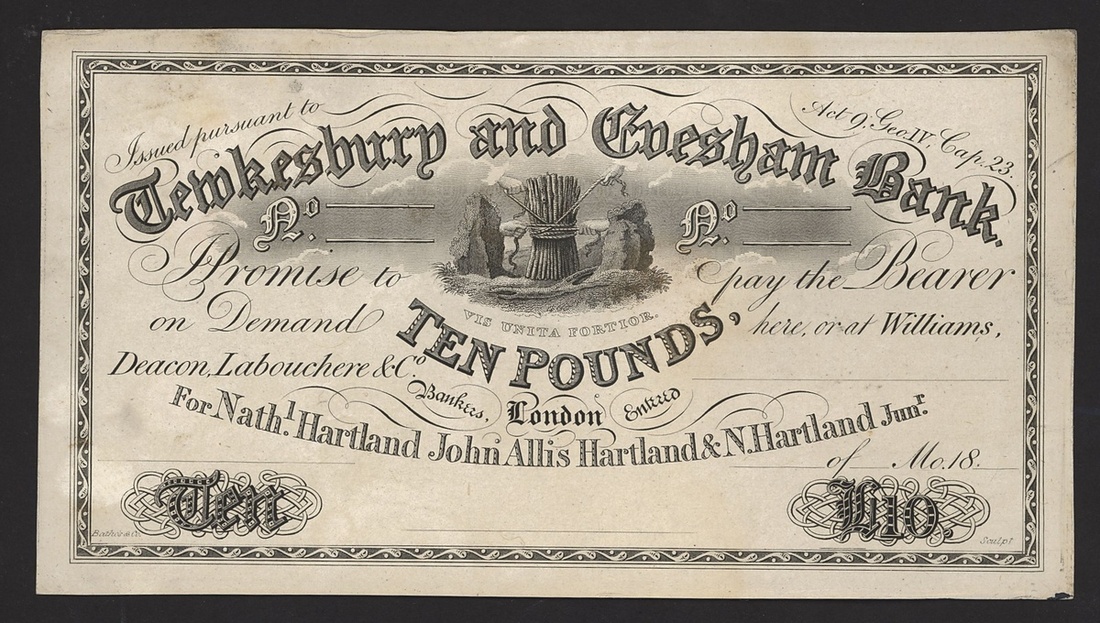 Issued pursuant to Act 9. Geo. IV, Cap. 23.
Tewkesbury and Evesham Bank.
No. No.
I Promise to pay the Bearer
on Demand TEN POUNDS, here, or at Williams,
VIS UNITA FORTIOR.
Deacon, Labouchere & Co.
Bankers, London Entered
For Nathl. Hartland John Allis Hartland & N. Hartland Junr.
of Mo. 18
Ten £10.
Sculpt